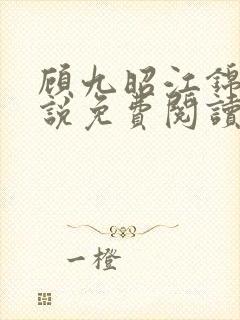 顾九昭江錦
說免費閱讀
一橙